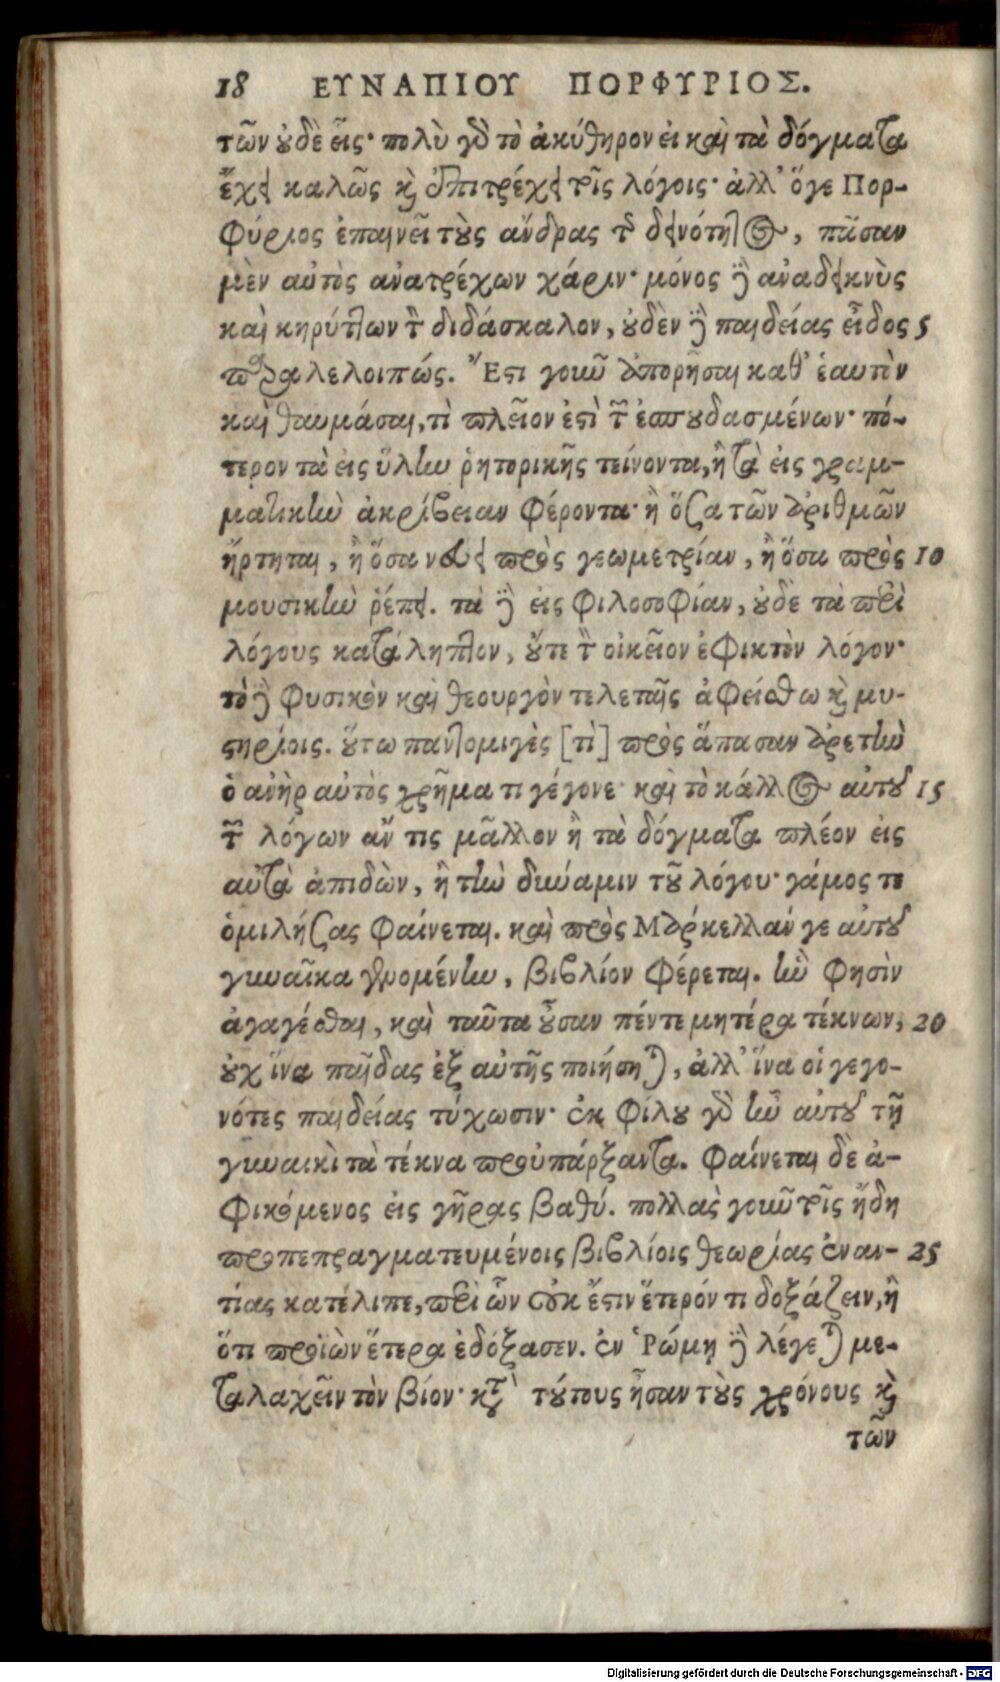 18 ΕΥΝΑΠΙΟΥ ΠΟΡΦΥΡΙΟΣ.
τῶν οὐδὲ εἷς· πολὺ γὰρ τὸ ἀκύθηρον εἰ καὶ τὰ δόγματα
ἔχει καλῶς καὶ ἐπιτρέχει τοῖς λόγοις· ἀλλ' ὅγε Πορ-
φύριος ἐπαινεῖ τοὺς ἄνδρας τῆς δεινότητος, πᾶσαν
μὲν αὐτὸς ἀνατρέχων χάριν· μόνος δὲ ἀναδεικνὺς
καὶ κηρύττων τὸν διδάσκαλον, οὐδὲν δὲ παιδείας εἶδος 5
παραλελοιπώς. Ἔστι γοῦν ἀπορῆσαι καθ' ἑαυτὸν
καὶ θαυμάσαι, τὶ πλεῖον ἐστὶ τῶν ἐσπουδασμένων· πό-
τερον τὰ εἰς ὕλην ῥητορικῆς τείνοντα, ἢ τὰ εἰς γραμ-
ματικὴν ἀκρίβειαν φέροντα· ἢ ὅσα τῶν ἀριθμῶν
ἤρτηται, ἢ ὅσα νεύει πρὸς γεωμετρίαν, ἢ ὅσα πρὸς 10
μουσικὴν ῥέπει. τὰ δὲ εἰς φιλοσοφίαν, οὐδὲ τὰ περὶ
λόγους καταληπτὸν, οὔτε τὸν οἰκεῖον ἐφικτὸν λόγον·
τὸ δὲ φυσικὸν καὶ θεουργὸν τελεταῖς ἀφείσθω καὶ μυ-
στηρίοις. οὕτω παντομιγὲς [τὶ] πρὸς ἅπασαν ἀρετὴν
ὁ ἀνὴρ αὐτὸς χρῆμα τι γέγονε· καὶ τὸ κάλλος αὐτοῦ 15
τῶν λόγων ἄν τις μᾶλλον ἢ τὰ δόγματα πλέον εἰς
αὐτὰ ἀπιδὼν, ἢ τὴν δύναμιν τοῦ λόγου· γάμος τε
ὁμιλήσας φαίνεται. καὶ πρὸς Μάρκελλάν γε αὐτοῦ
γυναῖκα γενομένην, βιβλίον φέρεται. ἣν φησὶν
ἀγαγέσθαι, καὶ ταῦτα οὖσαν πέντε μητέρα τέκνων, 20
οὐχ ἵνα παῖδας ἐξ αὐτῆς ποιήσηται, ἀλλ' ἵνα οἱ γεγο-
νότες παιδείας τύχωσιν· ἐκ φίλου γὰρ ἦν αὐτοῦ τῇ
γυναικὶ τὰ τέκνα προϋπάρξαντα. Φαίνεται δὲ ἀ-
φικόμενος εἰς γῆρας βαθύ. πολλὰς γοῦν τοῖς ἤδη
προπεπραγματευμένοις βιβλίοις θεωρίας ἐναν- 25
τίας κατέλιπε, περὶ ὧν οὐκ ἔστιν ἕτερόν τι δοξάζειν, ἢ
ὅτι προϊὼν ἕτερα ἐδόξασεν. ἐν Ῥώμῃ δὲ λέγεται με-
ταλαχεῖν τὸν βίον· κατὰ τούτους ἦσαν τοὺς χρόνους καὶ
τῶν
Digitalisierung gefördert durch die Deutsche Forschungsgemeinschaft - DFG